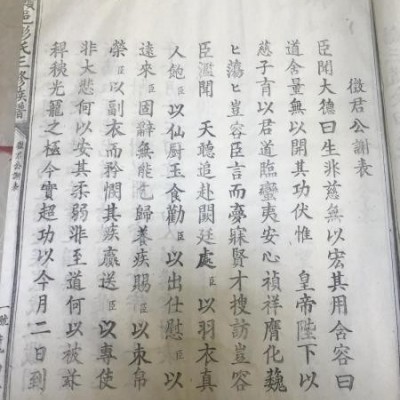 徵君公謝表
臣聞大德曰生非慈無以宏其用含容曰
道含量無以開其功伏惟　皇帝陛下以
慈子育以君道臨蠻夷安心禎祥膺化巍
巍蕩蕩豈容臣言而夢寐賢才搜訪豈容
臣濫聞　天聽追赴闕廷處臣以羽衣真
人飽臣以仙厨玉食勸臣以出仕慰臣以
遠來臣固辭無能乞歸養疾賜臣以束帛
榮臣以副衣而矜憫其疾羸送臣以專使
非大慈何以安其柔弱非至道何以被茲
稗稊光寵之極今實超功以今月二日到
彭氏三修族譜
徵君公謝表